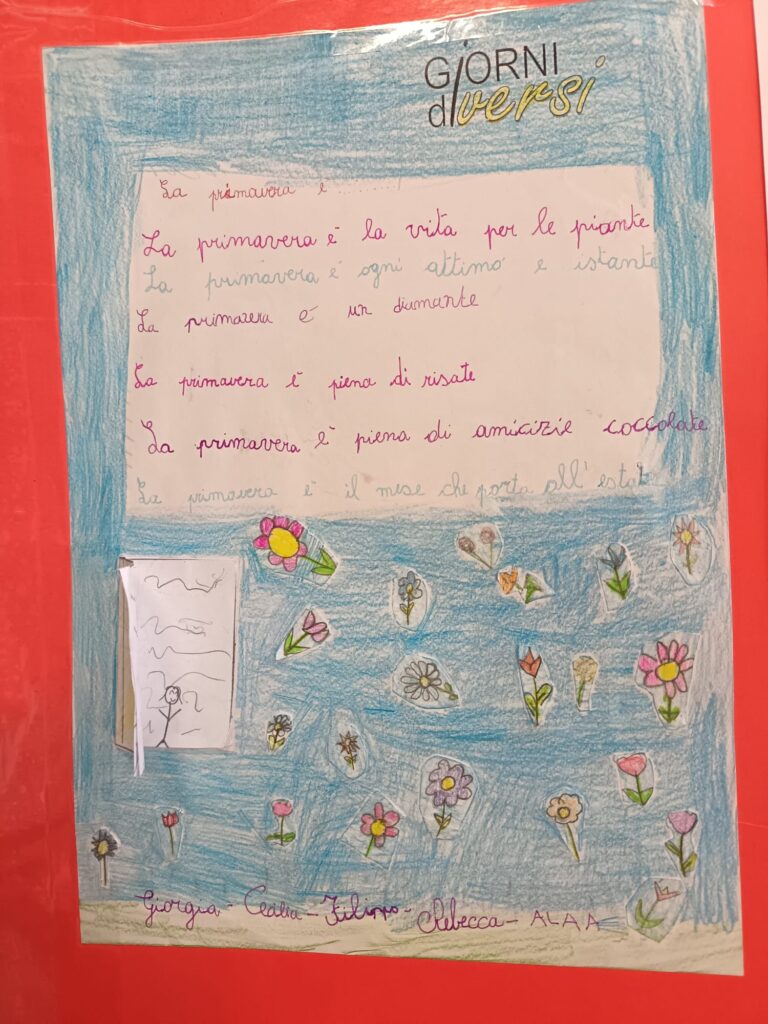 GIORNI
diversi
La primavera è ...........
La primavera è la vita per le piante
La primavera è ogni attimo e istante
La primavera è un diamante
La primavera è piena di risate
La primavera è piena di amicizie coccolate
La primavera è il mese che porta all'estate
Giorgia - Clelia - Filippo - Rebecca - ALAA